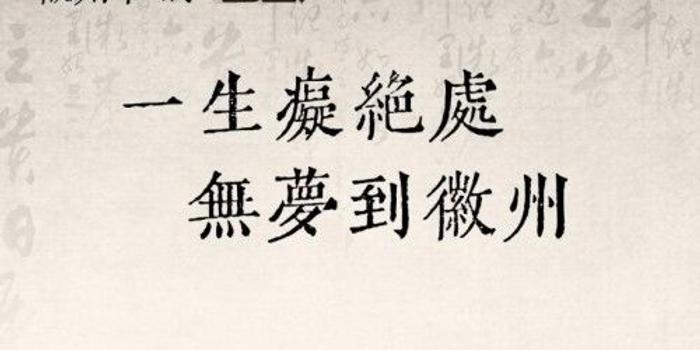 一生癡絕處
無夢到徽州